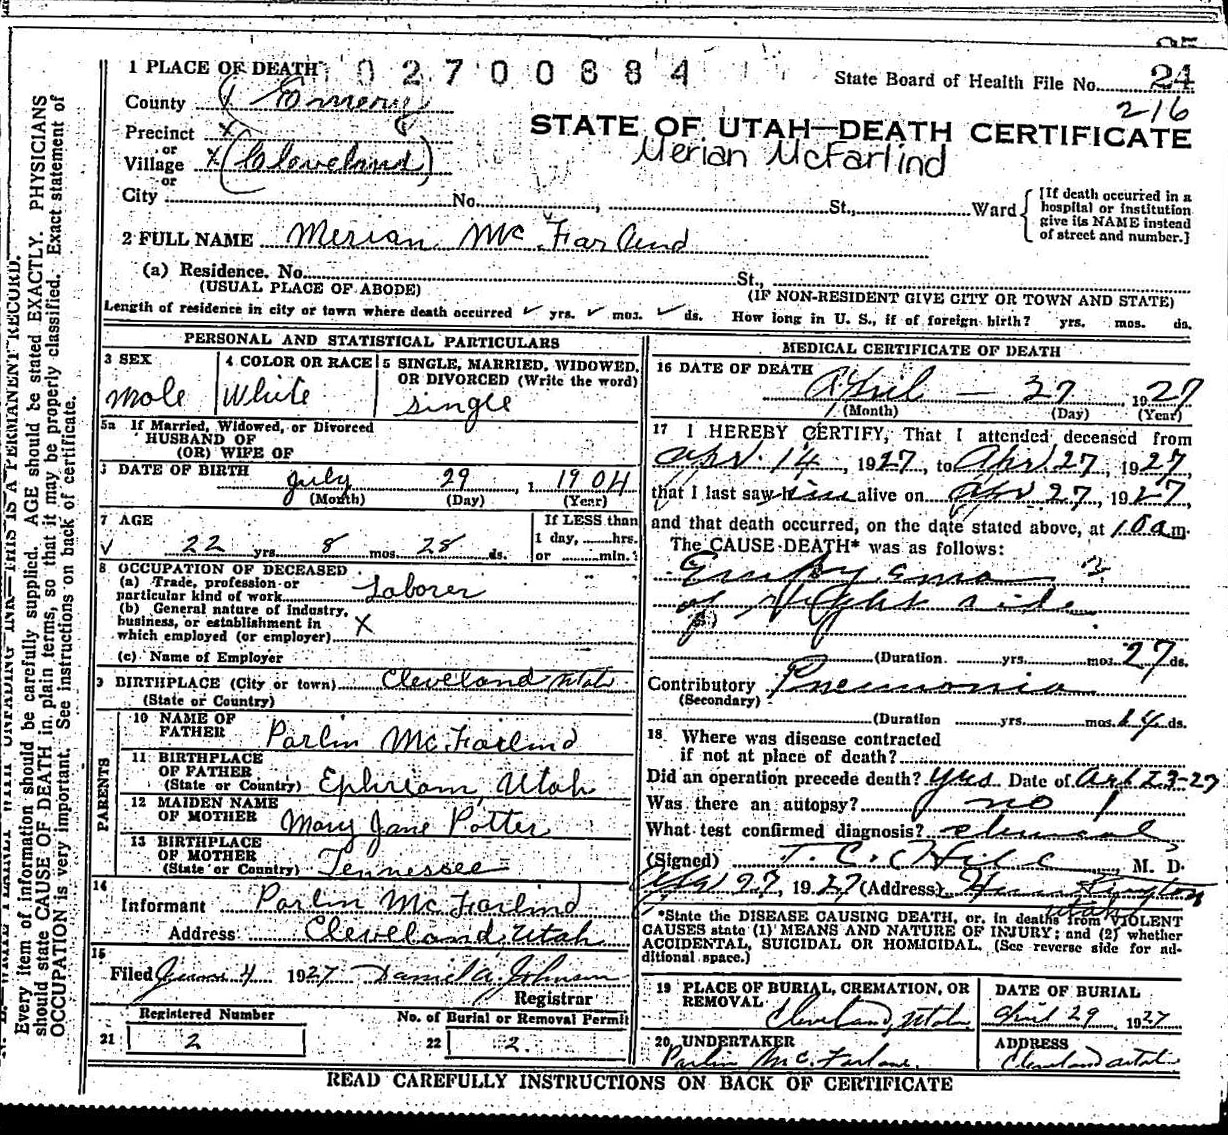 1 PLACE OF DEATH 02700884 State Board of Health File No. 24
County Emery 216
Precinct x STATE OF UTAH—DEATH CERTIFICATE
or
Village x (Cleveland) Merian McFarlind
or
City No. , St., Ward {[If death occurred in a hospital or institution give its NAME instead of street and number.]
2 FULL NAME Merian McFarlind
(a) Residence. No. St.,
(USUAL PLACE OF ABODE) (IF NON-RESIDENT GIVE CITY OR TOWN AND STATE)
Length of residence in city or town where death occurred ✓ yrs. ✓ mos. ✓ ds. How long in U. S., if of foreign birth? yrs. mos. ds.
PERSONAL AND STATISTICAL PARTICULARS
3 SEX
male
4 COLOR OR RACE
White
5 SINGLE, MARRIED, WIDOWED, OR DIVORCED (Write the word)
single
5a If Married, Widowed, or Divorced
HUSBAND OF
(OR) WIFE OF
DATE OF BIRTH July 29, 1904
(Month) (Day) (Year)
7 AGE If LESS than
1 day, hrs.
✓ 22 yrs. 8 mos. 28 ds. or min.
8 OCCUPATION OF DECEASED
(a) Trade, profession or
particular kind of work Laborer
(b) General nature of industry,
business, or establishment in
which employed (or employer) X
(c) Name of Employer
9 BIRTHPLACE (City or town) Cleveland Utah
(State or Country)
PARENTS
10 NAME OF
FATHER Parlin McFarlind
11 BIRTHPLACE
OF FATHER
(State or Country) Ephriam, Utah
12 MAIDEN NAME
OF MOTHER Mary Jane Potter
13 BIRTHPLACE
OF MOTHER
(State or Country) Tennessee
14
Informant Parlin McFarlind
Address Cleveland, Utah
15
Filed June 4 1927 Daniel A. Johnson
Registrar
Registered Number No. of Burial or Removal Permit
21 2 22 2
MEDICAL CERTIFICATE OF DEATH
16 DATE OF DEATH
April — 27, 1927
(Month) (Day) (Year)
17 I HEREBY CERTIFY, That I attended deceased from
Apr. 14, 1927, to Apr. 27, 1927,
that I last saw him alive on Apr 27, 1927,
and that death occurred, on the date stated above, at 10 a m.
The CAUSE DEATH* was as follows:
Empyema
of right side
(Duration yrs. mos. 27 ds.
Contributory Pneumonia
(Secondary)
(Duration yrs. mos. 14 ds.
18 Where was disease contracted
if not at place of death?
Did an operation precede death? yes Date of Apr 23-27
Was there an autopsy? no
What test confirmed diagnosis? clinical
(Signed) T. C. Hill, M. D.
Apr 27, 1927 (Address) Huntington
Utah
*State the DISEASE CAUSING DEATH, or, in deaths from VIOLENT
CAUSES state (1) MEANS AND NATURE OF INJURY; and (2) whether
ACCIDENTAL, SUICIDAL OR HOMICIDAL. (See reverse side for ad-
ditional space.)
19 PLACE OF BURIAL, CREMATION, OR
REMOVAL
Cleveland, Utah
DATE OF BURIAL
April 29 1927
20 UNDERTAKER
Parlin McFarlane
ADDRESS
Cleveland Utah
READ CAREFULLY INSTRUCTIONS ON BACK OF CERTIFICATE
Every item of information should be carefully supplied. AGE should be stated EXACTLY. PHYSICIANS
should state CAUSE OF DEATH in plain terms, so that it may be properly classified. Exact statement of
OCCUPATION is very important. See instructions on back of certificate.